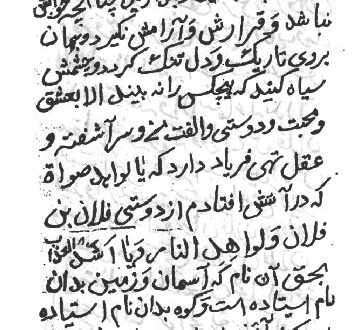 نباشد و قرارش و آرامش نگیرد و جهان
بروی تاریک و دل تنک کردد و چشمش
سیاه کنید که هیچکس را نه بیند الا بعشق
و محبت و دوستی و الفت من و سر آشفته و
عقل تهی فریاد دارد که یا
که در آتش افتادم از دوستی فلان بن
فلان و لواهل النار و یا اشد العذاب
بحق آن نام که آسمان و زمین بدان
نام استاده است و کوه بدان نام استاده